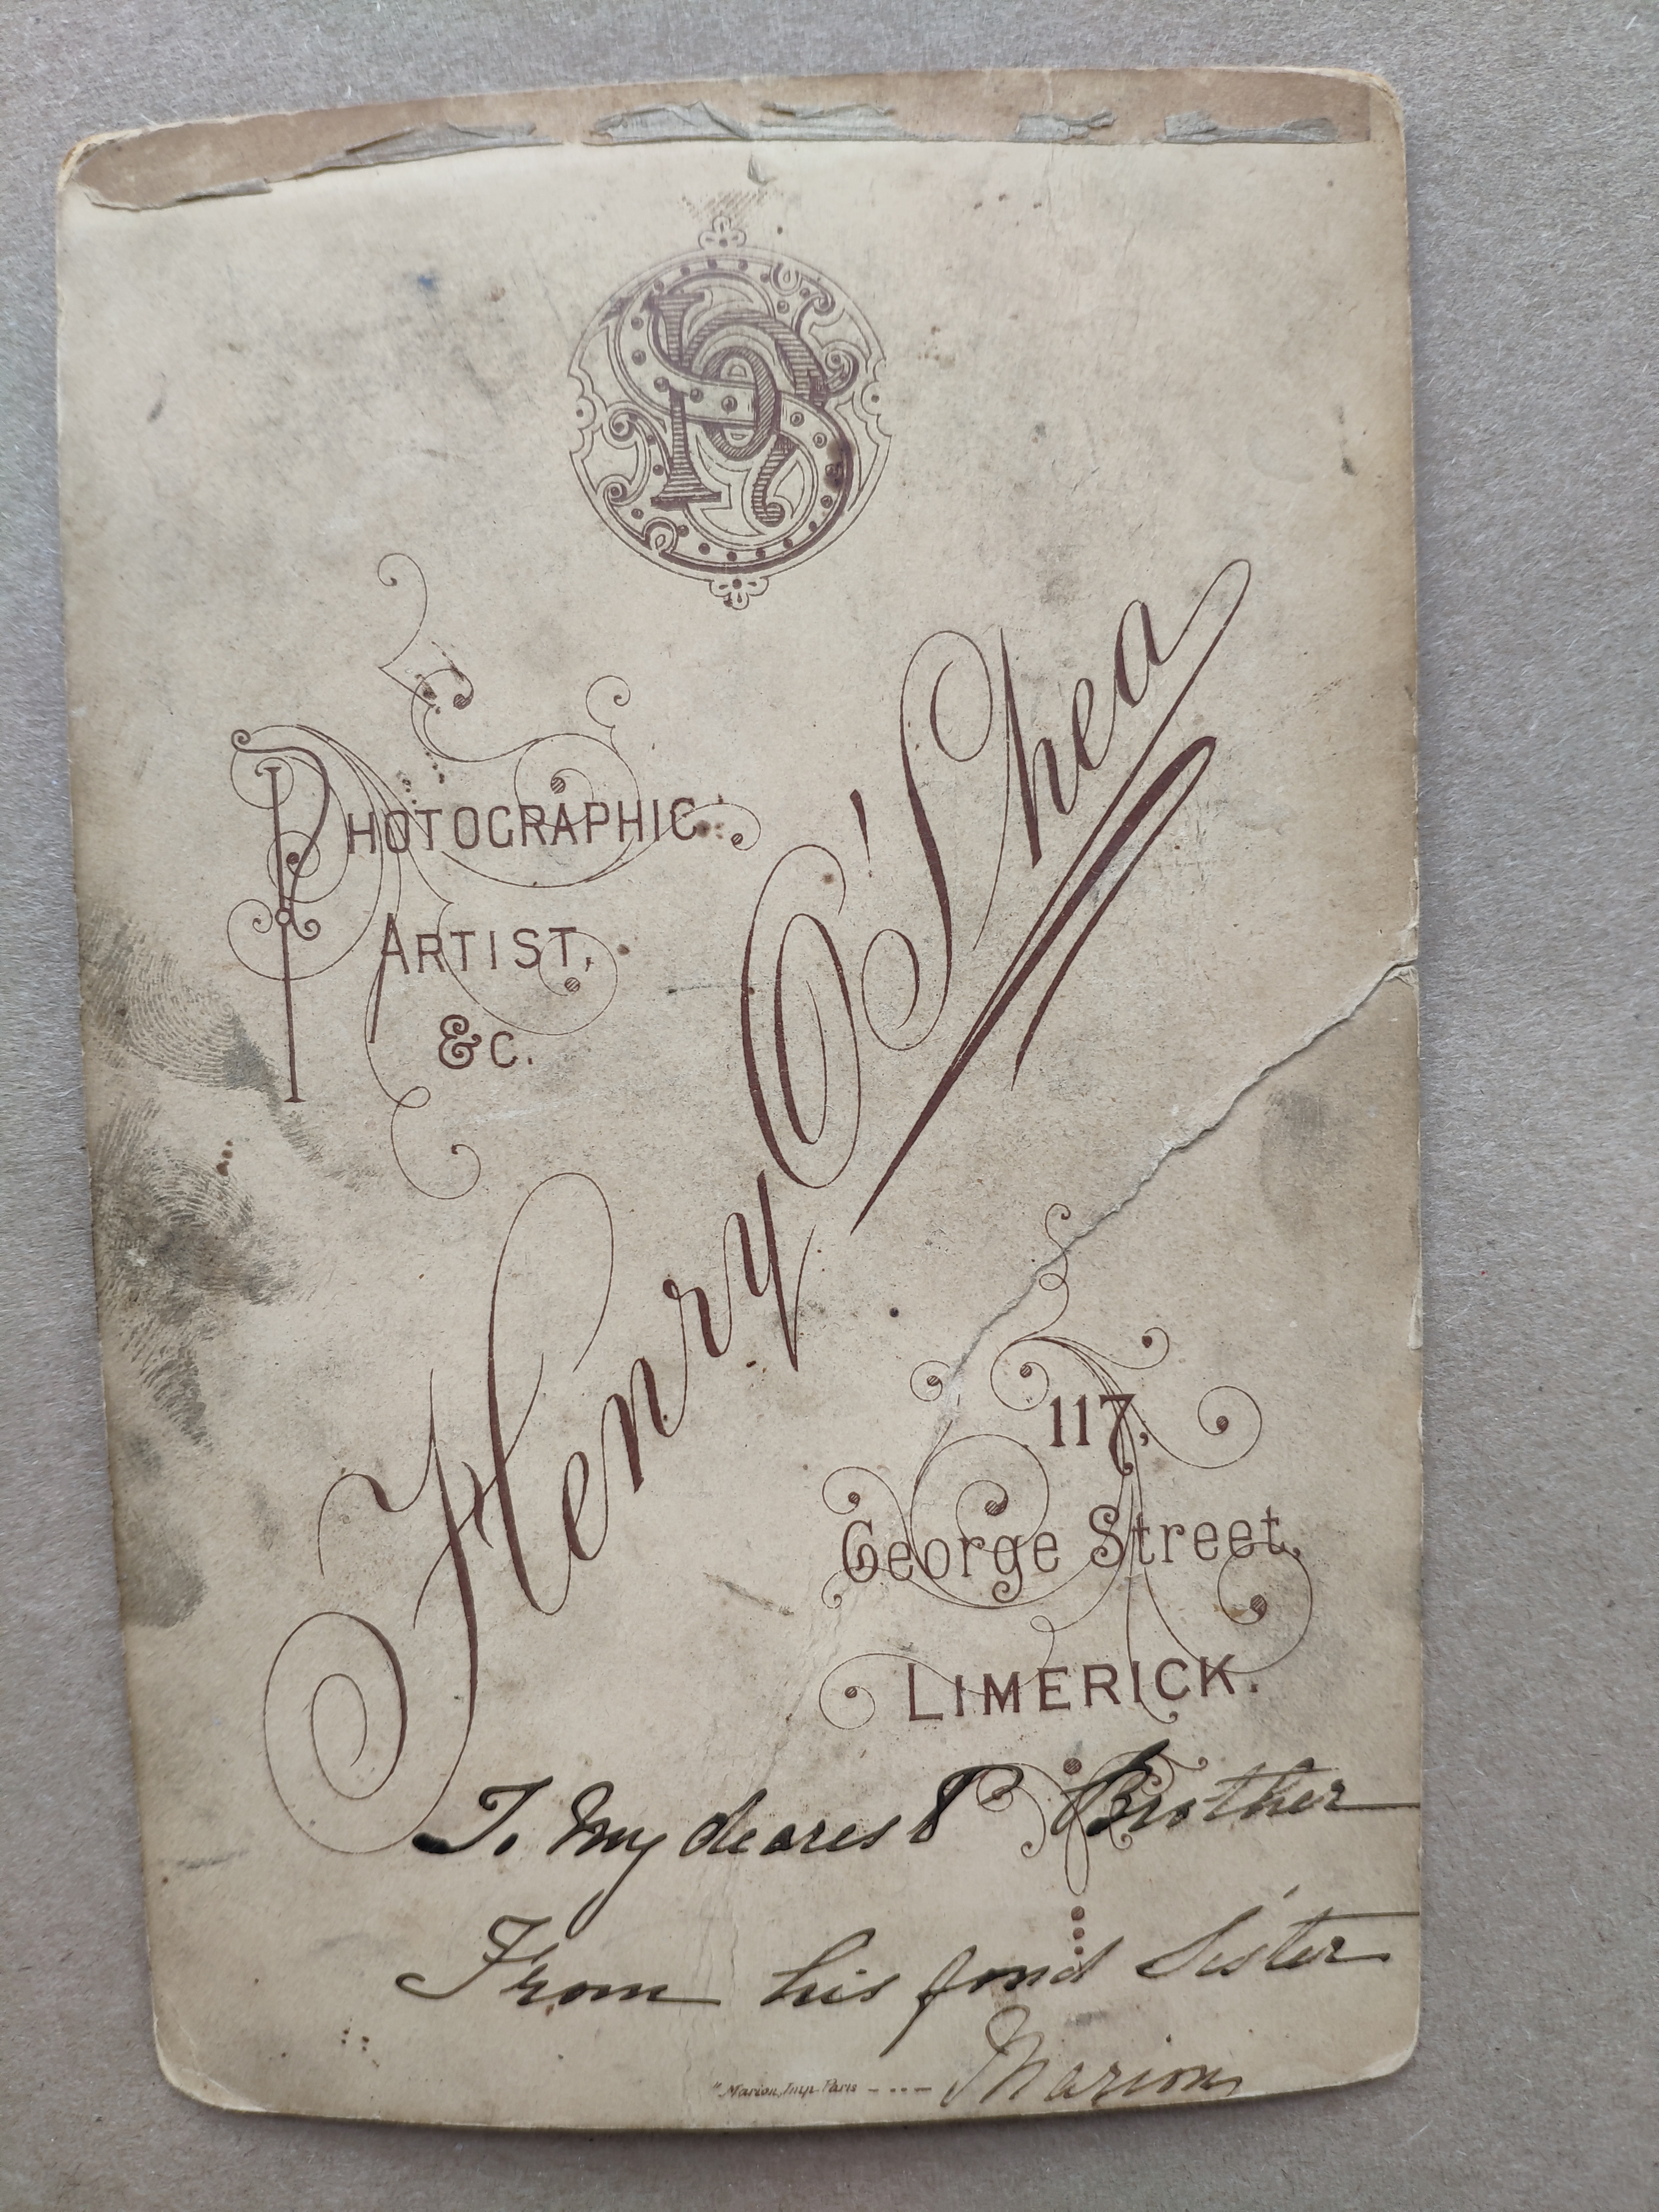 PHOTOGRAPHIC
ARTIST,
&C.
Henry O'Shea
117,
George Street,
LIMERICK.
To My dearest Brother
From his fond Sister
Marion
Marion, Imp. Paris